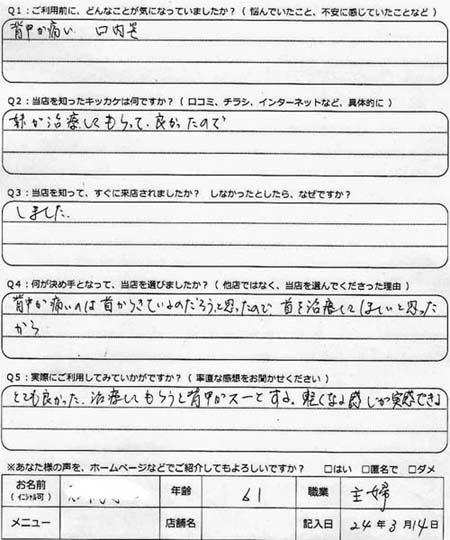 Q1：ご利用前に、どんなことが気になっていましたか？（悩んでいたこと、不安に感じていたことなど）
背中が痛い 口内炎
Q2：当店を知ったキッカケは何ですか？（口コミ、チラシ、インターネットなど、具体的に）
妹が治療してもらって、良かったので
Q3：当店を知って、すぐに来店されましたか？ しなかったとしたら、なぜですか？
しました．
Q4：何が決め手となって、当店を選びましたか？（他店ではなく、当店を選んでくださった理由）
背中が痛いのは首からきているのだろうと思ったので 首を治療して ほしいと思った
から
Q5：実際にご利用してみていかがですか？（率直な感想をお聞かせください）
とても良かった．治療してもらうと背中がスーとする。軽くなる感じが実感できる
※あなた様の声を、ホームページなどでご紹介してもよろしいですか？ □はい □匿名で □ダメ
お名前 年齢 61 職業 主婦
（イニシャル可）
メニュー 店舗名 記入日 24年3月14日